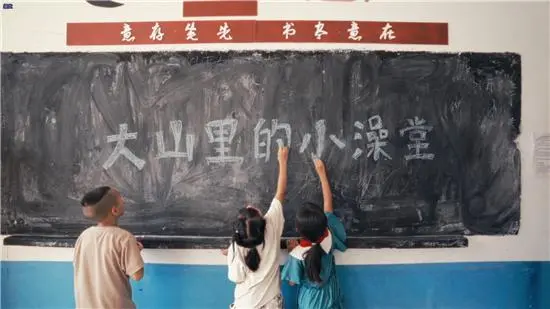 意存笔先 书尽意在
大山里的小澡堂